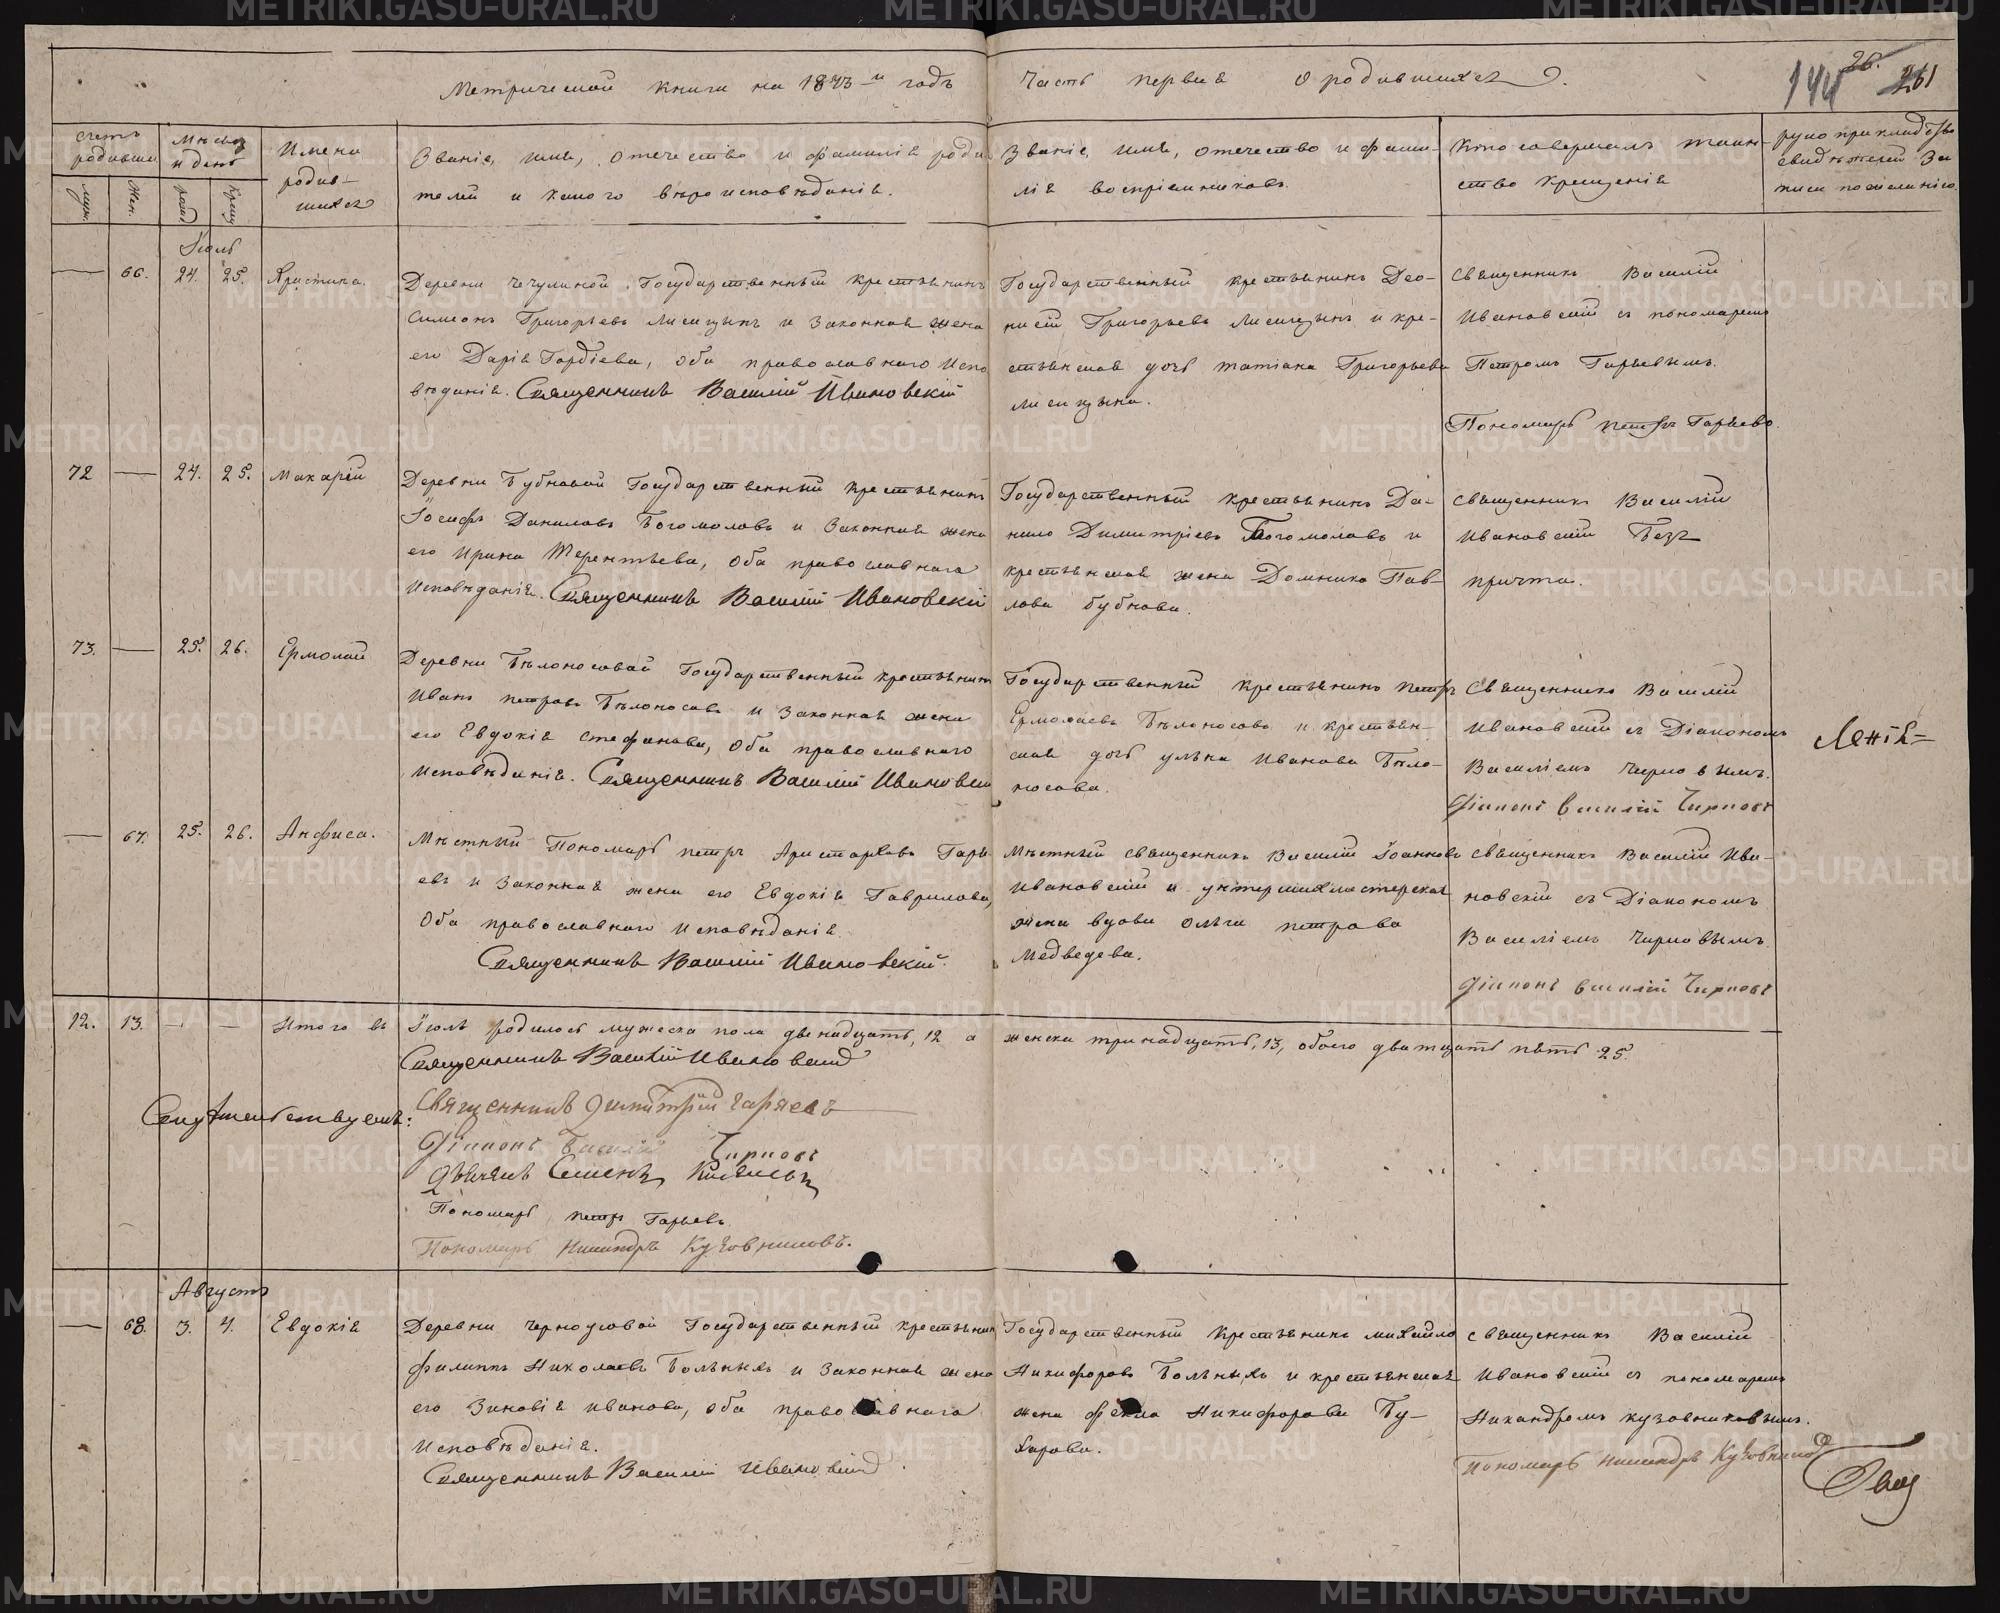 Метрической книги на 1873-й годъ
Часть первая о родившихся.
144 26. 261
Счетъ родивши
Мѣсяц и день
Имена родив-
шихся
муж.
жен.
рожд
крещ
Званіе, имя, отечество и фамилія роди
телей и какого вѣроисповѣданія.
Званіе, имя, отечество и фами-
лія воспріемниковъ.
Кто совершалъ таин-
ство крещенія
руко прикладство
свидѣтелей за
писи по желанію.
Іюль
— 66. 24. 25. Христина.
Деревни Чечулиной Государственный крестьянинъ
Симеонъ Григорьевъ Лисицынъ и законная жена
его Дарія Гордіева, оба православнаго испо
вѣданія. Священникъ Василій Ивановскій
Государственный крестьянинъ Део-
нисій Григорьевъ Лисицынъ и кре-
стьянская дочь Татіана Григорьева
Лисицына.
Священникъ Василій
Ивановскій съ пономаремъ
Петромъ Гарьевымъ.
Пономарь Петръ Гарьевъ.
72 — 24. 25. Макарій
Деревни Бубновой Государственный крестьянинъ
Іосифъ Даниловъ Богомоловъ и законная жена
его Ирина Терентьева, оба православнаго
исповѣданія. Священникъ Василій Ивановскій
Государственный крестьянинъ Да-
нило Димитріевъ Богомоловъ и
крестьянская жена Домника Пав-
лова Бубнова.
Священникъ Василій
Ивановскій безъ
причта.
73. — 25. 26. Ермолай
Деревни Бѣлоносовой Государственный крестьянинъ
Иванъ Петровъ Бѣлоносовъ и законная жена
его Евдокія Стефанова, оба православнаго
исповѣданія. Священникъ Василій Ивановски
Государственный крестьянинъ Петръ
Ермолаевъ Бѣлоносовъ и крестьян-
ская дочь Ульяна Иванова Бѣло-
носова.
Священникъ Василій
Ивановскій съ Діакономъ
Василіемъ Чирновымъ.
Діаконъ Василій Чирновъ
— 67. 25. 26. Анфиса.
Мѣстный Пономарь Петръ Аристарховъ Гарь
евъ и законная жена его Евдокія Гаврилова,
оба православнаго исповѣданія
Священникъ Василій Ивановскій.
Мѣстный священникъ Василій Іоанновъ
Ивановскій и унтершихмастерская
жена вдова Ольга Петрова
Медведева.
Священникъ Василій Ива-
новскій съ Діакономъ
Василіемъ Чирновымъ.
Діаконъ Василій Чирновъ
12. 13. — — Итого въ Іюлѣ родилось мужеска пола двенадцать, 12 а женска тринадцать, 13, обоего двадцать пять 25.
Священникъ Василій Ивановскій
Священникъ Димитрій Гаряевъ
Діаконъ Василій Чирновъ
Дьячекъ Семенъ
Пономарь Петръ Гарьевъ
Пономарь Никандръ Кузовниковъ.
Августъ
— 68. 3. 4. Евдокія
Деревни Черноусовой Государственный крестьянин
Филиппъ Николаевъ Больныхъ и законная жена
его Зиновія Иванова, оба православнаго
исповѣданія.
Священникъ Василій Ивановскій.
Государственный крестьянинъ Михайло
Никифоровъ Больныхъ и крестьянская
жена Фекла Никифорова Бу-
харова.
Священникъ Василій
Ивановскій съ пономаремъ
Никандромъ Кузовниковымъ.
Пономарь Никандръ Кузовников
METRIKI.GASO-URAL.RU